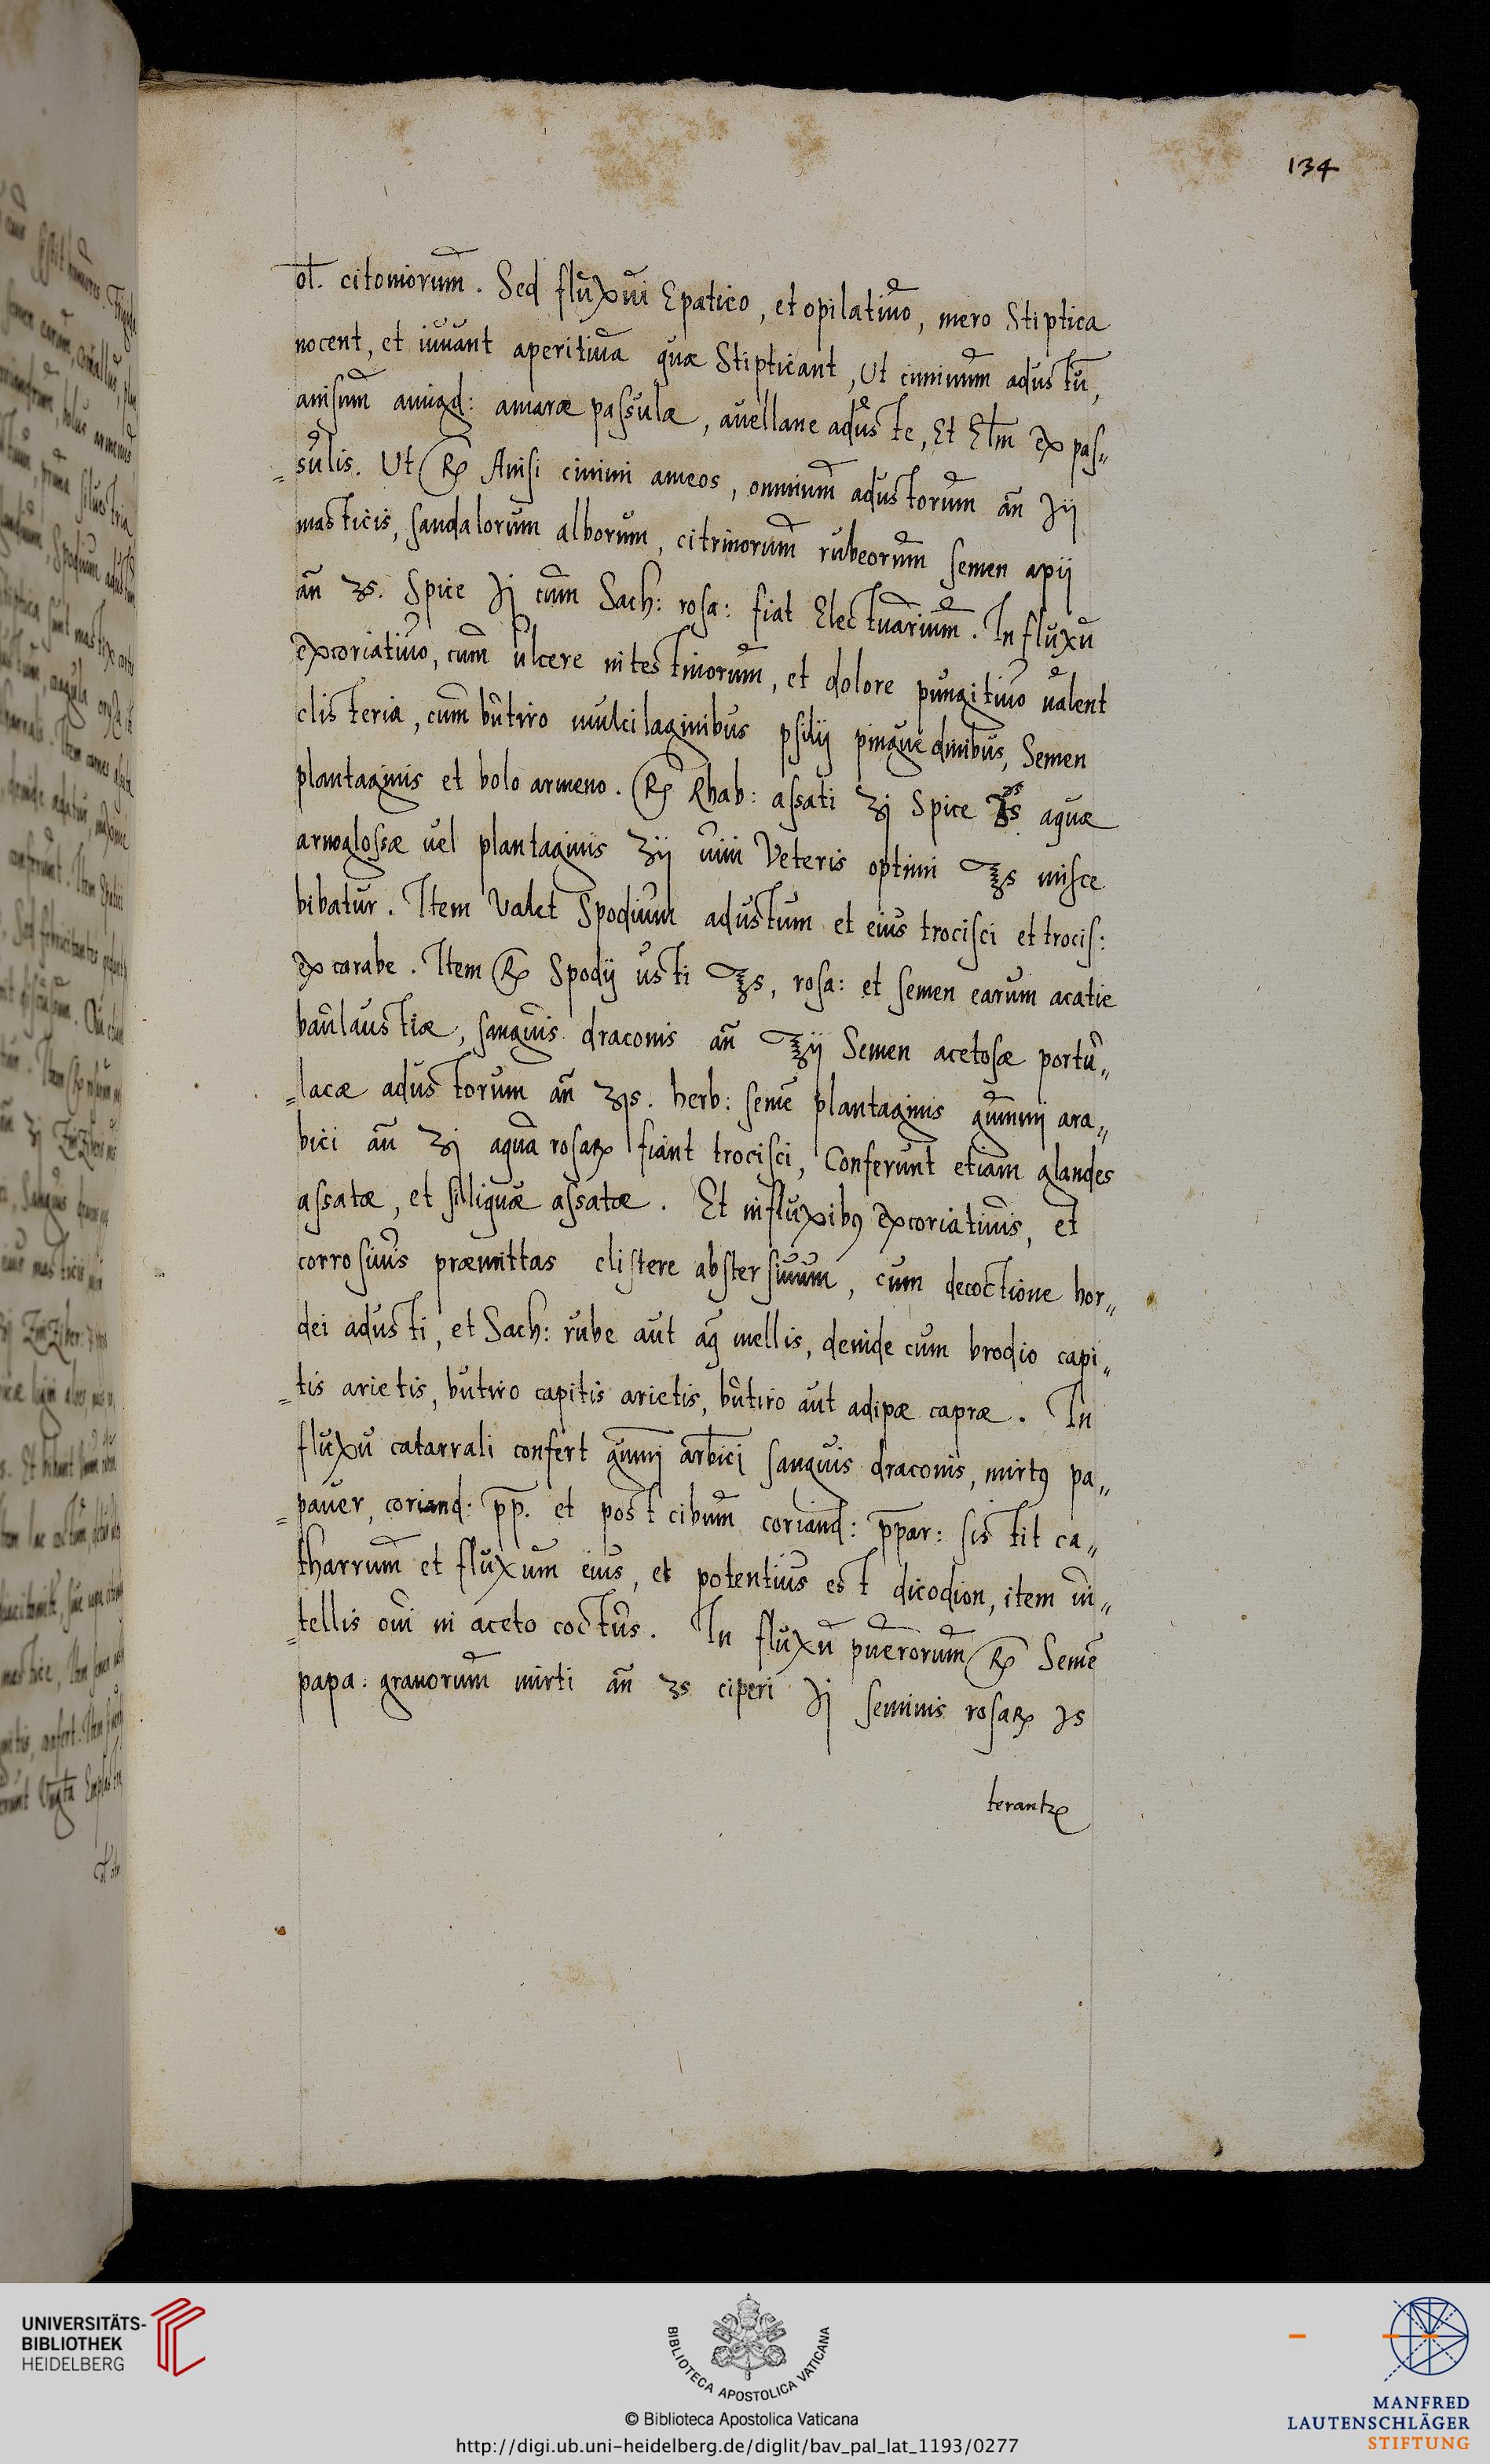 134
ol. citoniorum. Sed fluxui Epatico, et opilatiuo, mero Stiptica
nocent, et iuuant aperitiua quæ Stipticant, Ut ciminum adustū,
anisum amigd: amaræ passulæ, auellane aduste, Et Eltm ex pas„
„sulis. Ut ℞ Anisi cimini ameos, omnium adustorum an̄ ℈ij
masticis, sandalorum alborum, citrinorum rubeorum semen apij
an̄ ʒs. Spice ℈j cum Sach: rosa: fiat Electuarium. In fluxu
excoriatiuo, cum ulcere intestinorum, et dolore pungitiuo ualent
clisteria, cum butiro mulcilaginibus psilij pinguedinibus, Semen
plantaginis et bolo armeno. ℞ Rhab: assati ʒj Spice ʒs aquæ
arnoglossæ uel plantaginis ʒij uini Veteris optimi ℥s misce
bibatur. Item Valet Spodium adustum et eius trocisci et trocis:
ex carabe. Item ℞ Spodij usti ℥s, rosa: et semen earum acatie
baulaustiæ, sanguis draconis an̄ ℥ij Semen acetosæ portu„
„lacæ adustorum an̄ ʒjs. herb: semē plantaginis gummj ara„
bici an̄ ʒj aqua rosaꝝ fiant trocisci, Conferunt etiam glandes
assatæ, et siliquæ assatæ. Et in fluxibꝰ excoriatiuis, et
corrosiuis præmittas clistere abstersiuum, cum decoctione hor„
dei adusti, et Sach: rube aut aq mellis, deinde cum brodio capi„
„tis arietis, butiro capitis arietis, butiro aut adipæ capræ. In
fluxu catarrali confert gum̄j arbicj sanguis draconis, mirtꝰ pa„
„pauer, coriand: pp̄. et post cibum coriand: pp̄ar: sistit ca„
tharrum et fluxum eius, et potentius est dicodion, item ui„
„tellis oui in aceto coctus. In fluxu puerorum ℞ Semē
papa: granorum mirti an̄ ʒs ciperi ℈j seminis rosaꝝ ℈s
terantꝝ
UNIVERSITÄTS-
BIBLIOTHEK
HEIDELBERG
BIBLIOTECA APOSTOLICA VATICANA
© Biblioteca Apostolica Vaticana
http://digi.ub.uni-heidelberg.de/diglit/bav_pal_lat_1193/0277
MANFRED
LAUTENSCHLÄGER
STIFTUNG